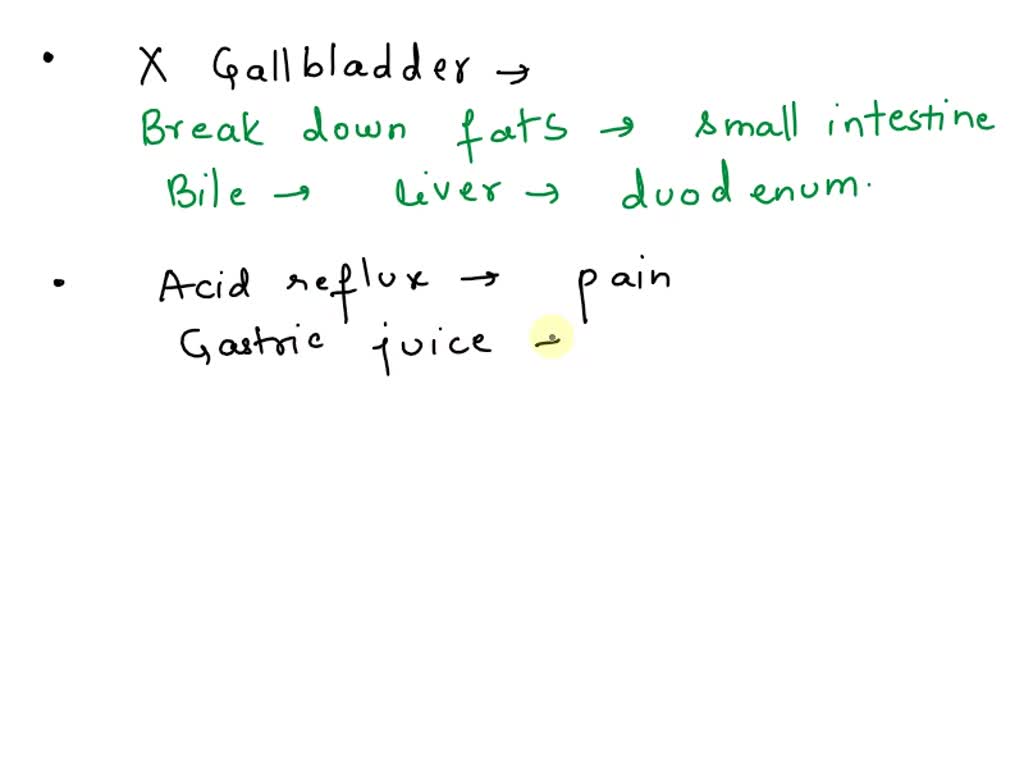 • X Gallbladder →
Break down fats → small intestine
Bile → liver → duodenum.
• Acid reflux → pain
Gastric juice -